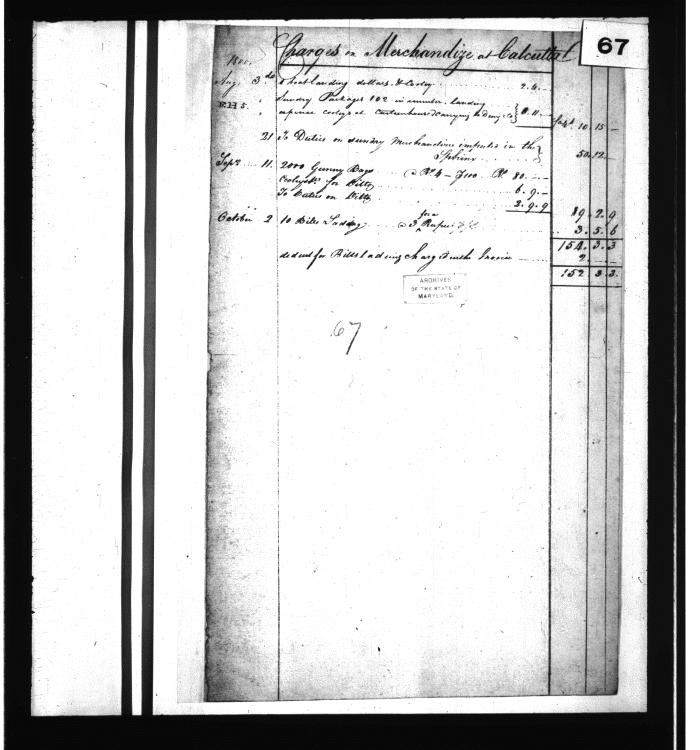 67
Charges on Merchandize at Calcutta
Aug. 3 boat landing dollars & Cooley 2.4.-
EH 5. " Sundry Packages 102 in number landing
expence cooleys at Customhouse & carrying to } 8.11.- 10.15.-
21 To Duties on sundry Merchandise imported in the
Sphinx } 50.12.-
Sept. 11. 2000 Gunny Bags @ Rs. 4 - 100 Rs. 80.-.-
for Ditto 6.9.-
To Duties on Ditto 2.9.9 89.2.9
October 2 10 Bills Lading @ 3 for a Rupee 3.5.6
154.3.3
deduct for Bills Lading Charged in the Invoice 2.
152.3.3.
ARCHIVES
OF THE STATE OF
MARYLAND.
67